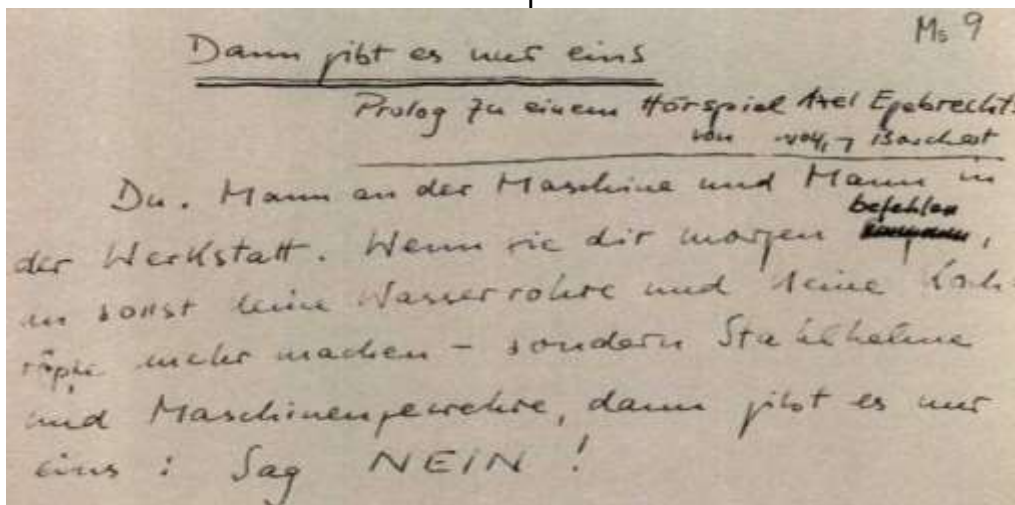 Ms 9
Dann gibt es nur eins
Prolog zu einem Hörspiel Axel
von Borchert
Du. Mann an der Maschine und Mann in
befehlen
der Werkstatt. Wenn sie dir morgen ,
du sollst keine Wasserrohre und keine Koch-
töpfe mehr machen – sondern Stahlhelme
und Maschinengewehre, dann gibt es nur
eins : Sag NEIN !